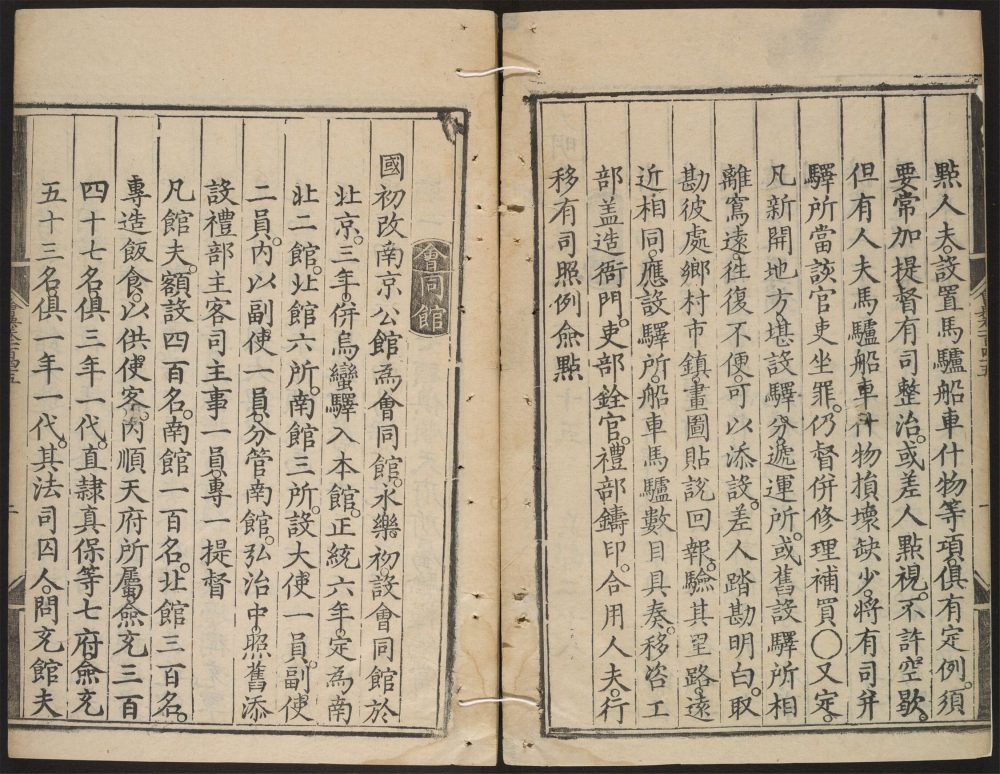 點人夫。設置馬驢船車什物等項。俱有定例。須
要常加提督有司整治。或差人點視。不許空歇。
但有人夫馬驢船車什物損壞缺少。將有司并
驛所當該官吏坐罪。仍督併修理補買〇又定。
凡新開地方。堪設驛分遞運所。或舊設驛所相
離寫遠。往復不便。可以添設。差人踏勘明白。取
勘彼處鄉村市鎮。畫圖貼說回報。驗其里路。遠
近相同。應設驛所。船車馬驢數目具奏。移咨工
部盖造衙門。吏部銓官。禮部鑄印。合用人夫。行
移有司照例僉點
會同館
國初改南京公館為會同館。永樂初設會同館於
北京。三年。併烏蠻驛入本館。正統六年。定為南
北二館。北館六所。南館三所。設大使一員。副使
二員。內以副使一員。分管南館。弘治中。照舊添
設禮部主客司主事一員。專一提督
凡館夫。額設四百名。南館一百名。北館三百名。
專造飯食。以供使客。內順天府所屬僉充三百
四十七名俱三年一代。直隸真保等七府僉充
五十三名俱一年一代。其法司囚人。問充館夫